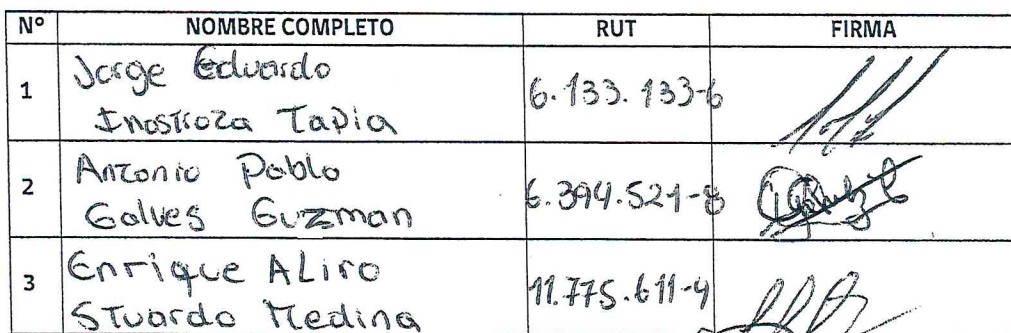 Nº NOMBRE COMPLETO RUT FIRMA
1 Jorge Eduardo
Inostroza Tapia 6.133.133-6
2 Antonio Pablo
Galves Guzman 6.394.521-8
3 Enrique ALiro
STuardo Medina 11.775.611-4